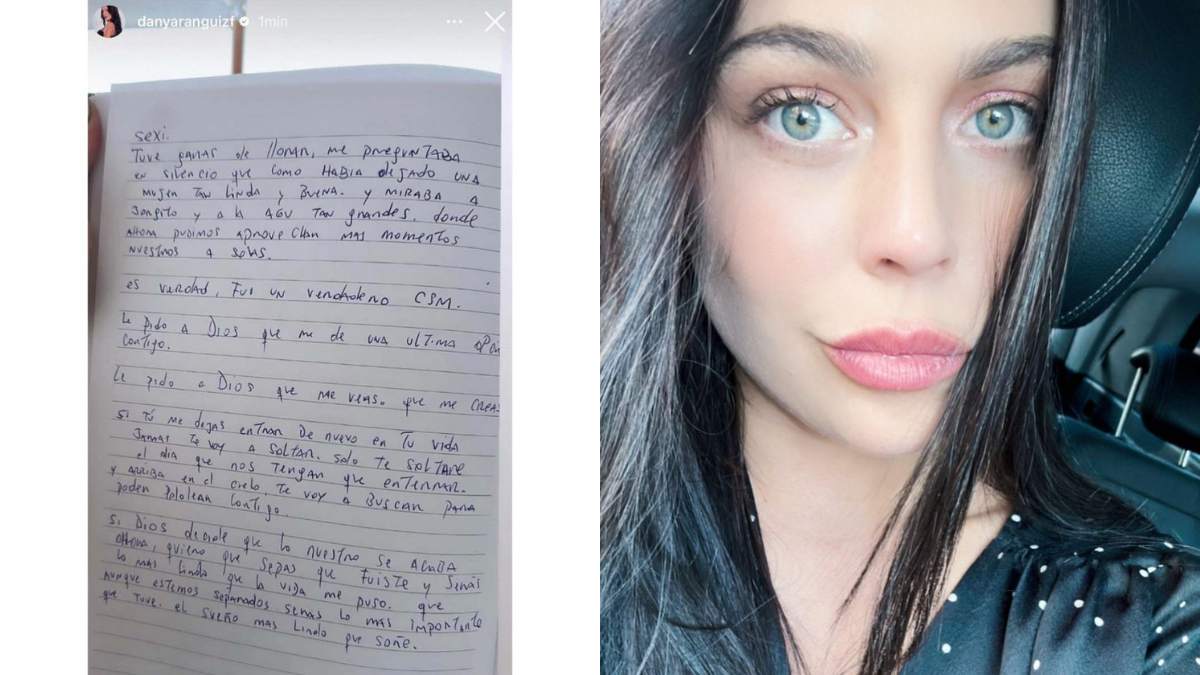 danyaranguizf 1min
sexi.
Tuve ganas de llorar, me preguntaba
en silencio que como había dejado una
mujer tan linda y buena. y miraba a
Jorgito y a la Agu tan grandes. donde
ahora pudimos aprovechar mas momentos
nuestros a solas.
es verdad, fui un verdadero CSM.
Le pido a Dios que me de una ultima
contigo.
Le pido a Dios que me veas. que me creas
si tú me dejas entrar de nuevo en tu vida
Jamas te voy a soltar. solo te soltare
el dia que nos tengan que enterrar.
y arriba en el cielo, te voy a buscar para
poder pololear contigo.
si Dios decide que lo nuestro se acaba
ahora, quiero que sepas que fuiste y serás
lo mas lindo que la vida me puso. que
aunque estemos separados seras lo mas importante
que tuve. el sueño mas lindo que soñe.